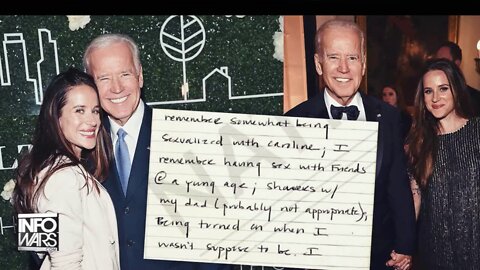 remember somewhat being
sexualized with caroline; I
remember having sex with Friends
@ a young age; showers w/
my dad (probably not appropriate);
Being turned on when I
wasn't suppose to be. I
INFO
WARS